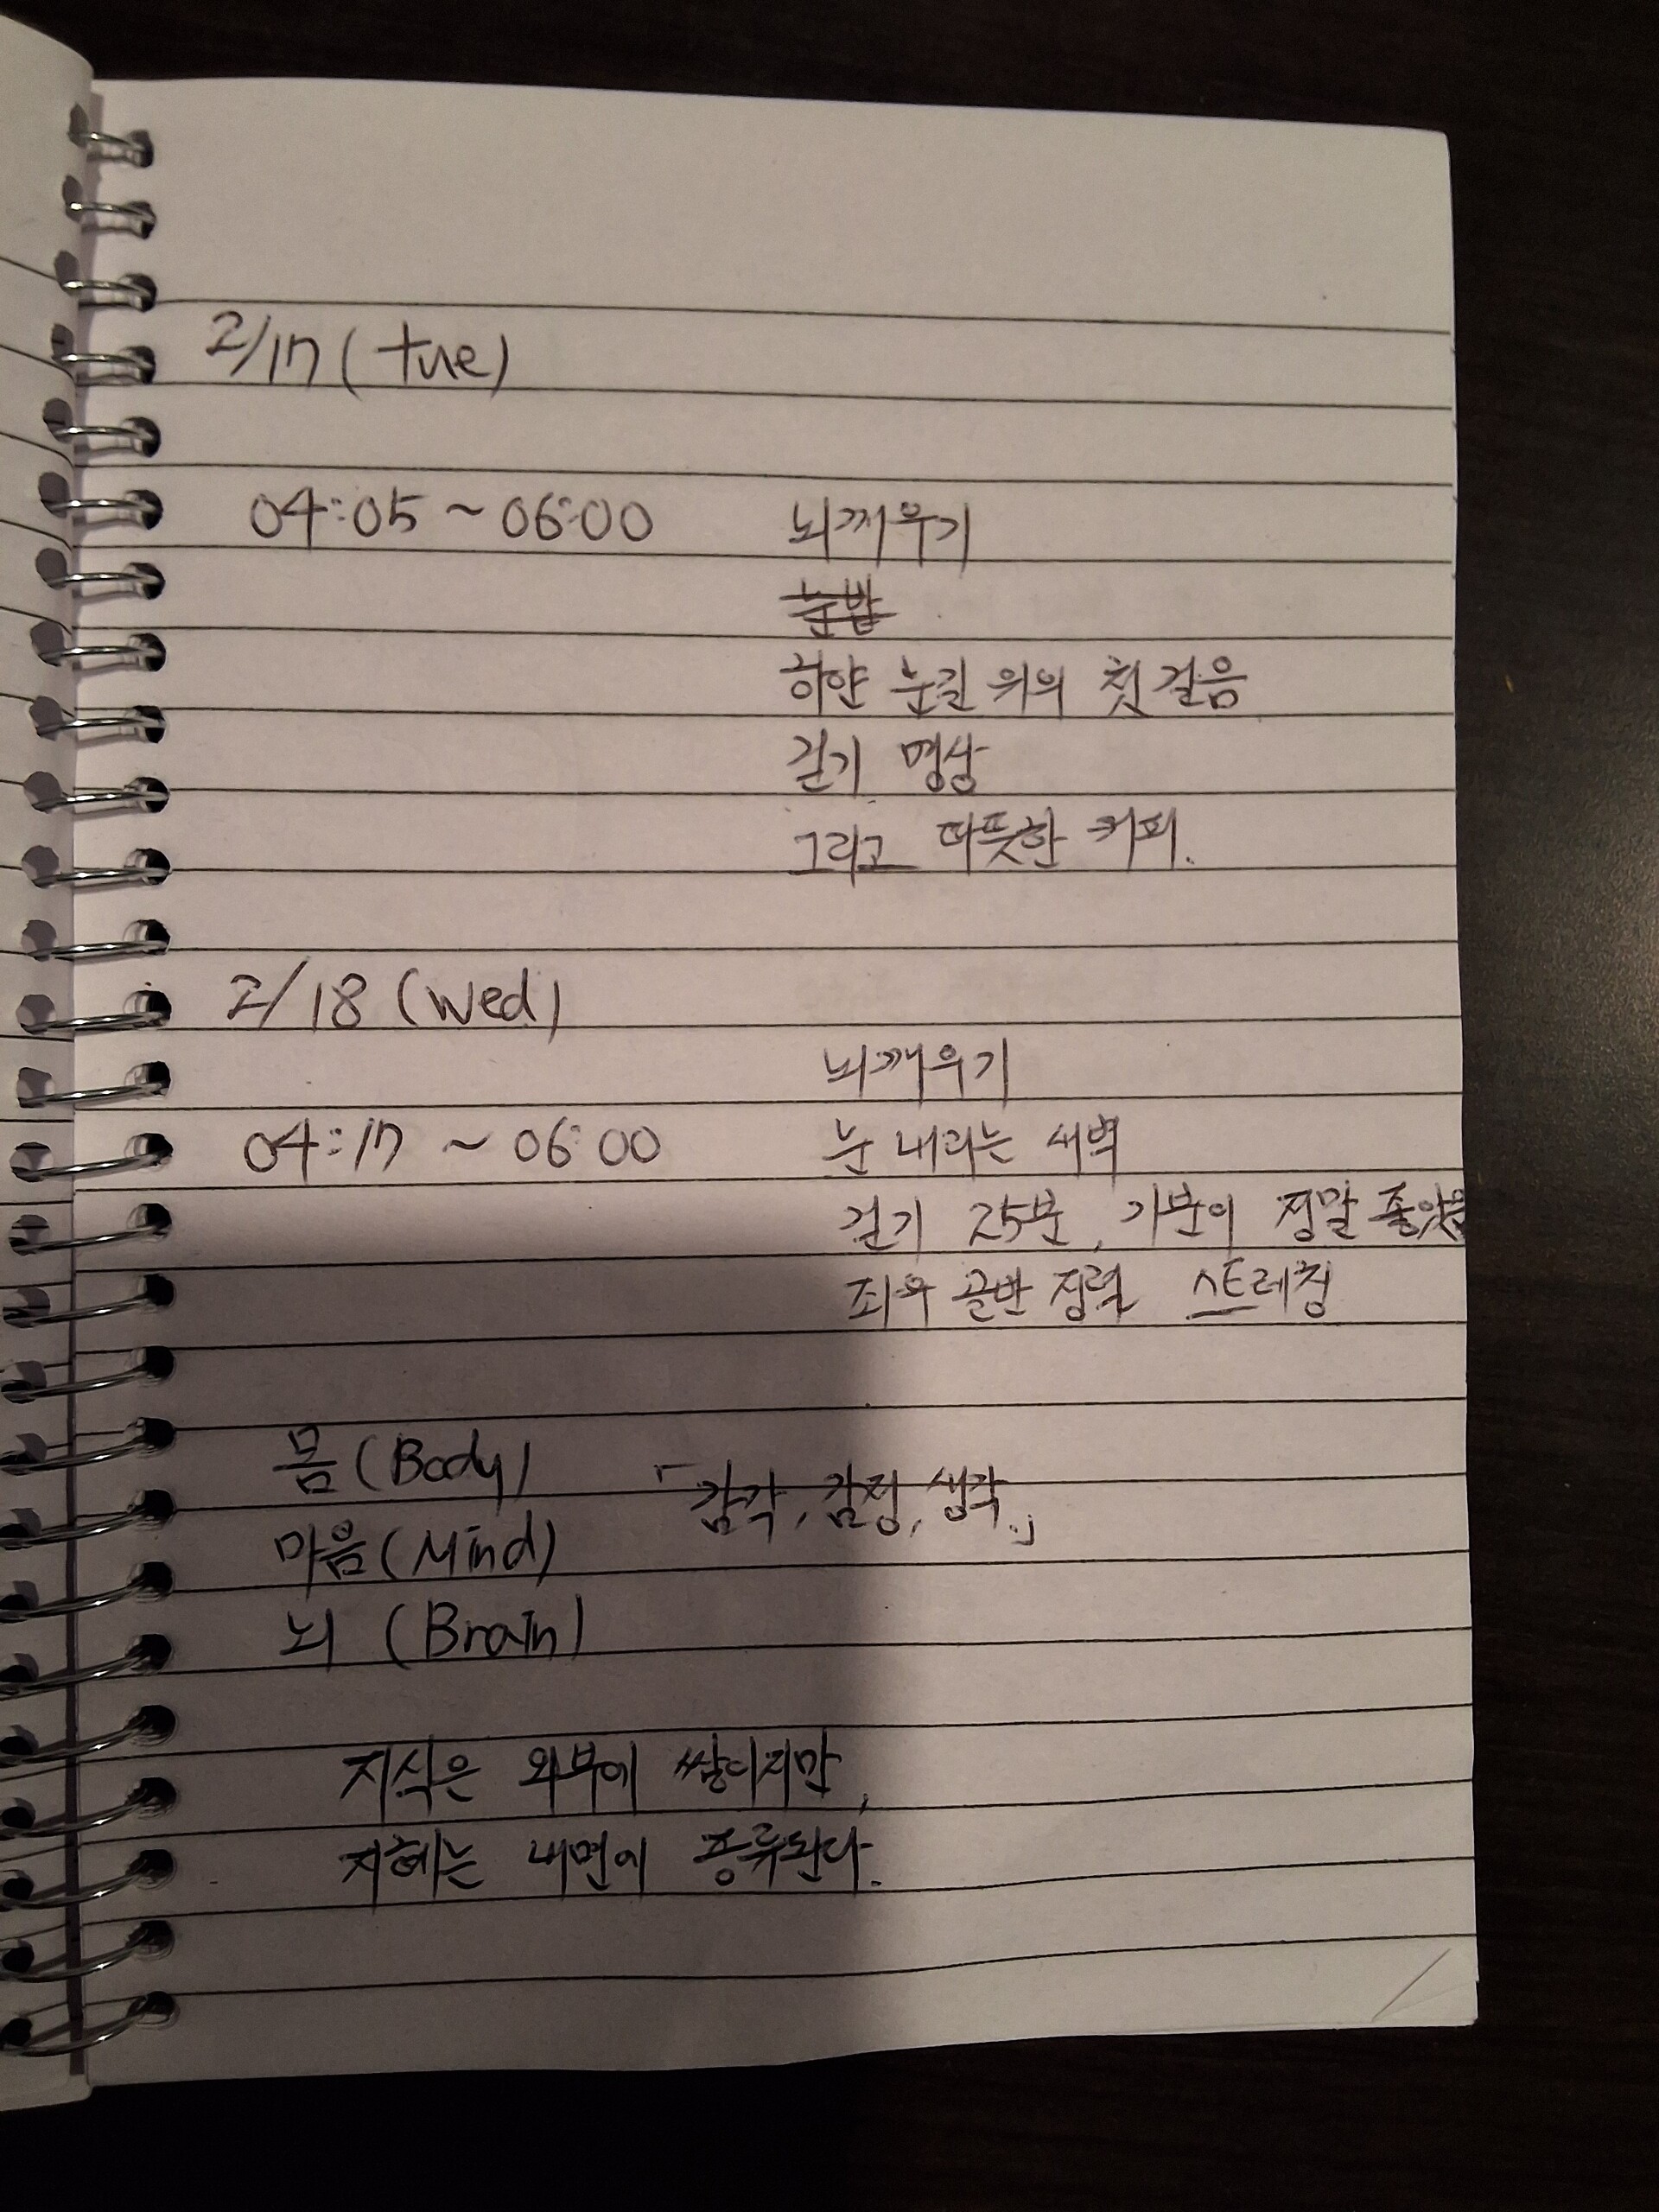 2/17 (tue)
04:05 ~ 06:00 뇌깨우기
눈밥
하얀 눈길 위의 첫 걸음
걷기 명상
그리고 따뜻한 커피.
2/18 (Wed)
뇌깨우기
04:17 ~ 06:00 눈 내리는 새벽
걷기 25분, 기분이 정말 좋았음
좌우 골반 정렬 스트레칭
몸 (Body) 「감각, 감정, 생각.」
마음 (Mind)
뇌 (Brain)
지식은 외부에 쌓이지만,
지혜는 내면에 증류된다.